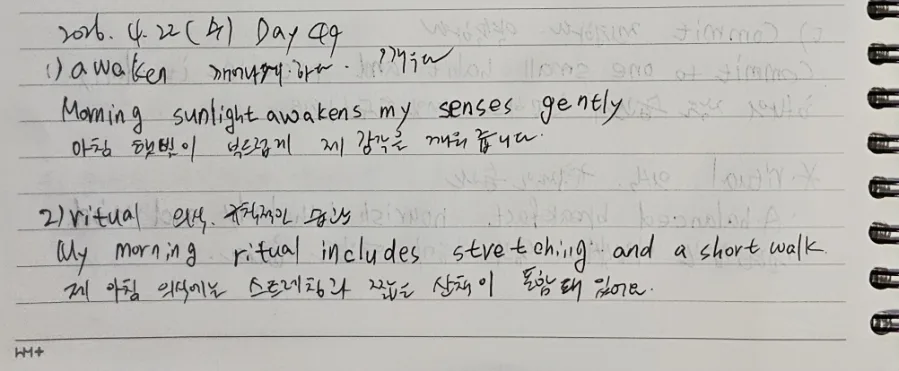 2026. 4. 22 (수) Day 99
1) awaken 깨어나게 하다. 깨우다
Morning sunlight awakens my senses gently
아침 햇빛이 부드럽게 제 감각을 깨워 줍니다.
2) ritual 의식. 규칙적인 습관
My morning ritual includes stretching and a short walk.
제 아침 의식에는 스트레칭과 짧은 산책이 포함돼 있어요.